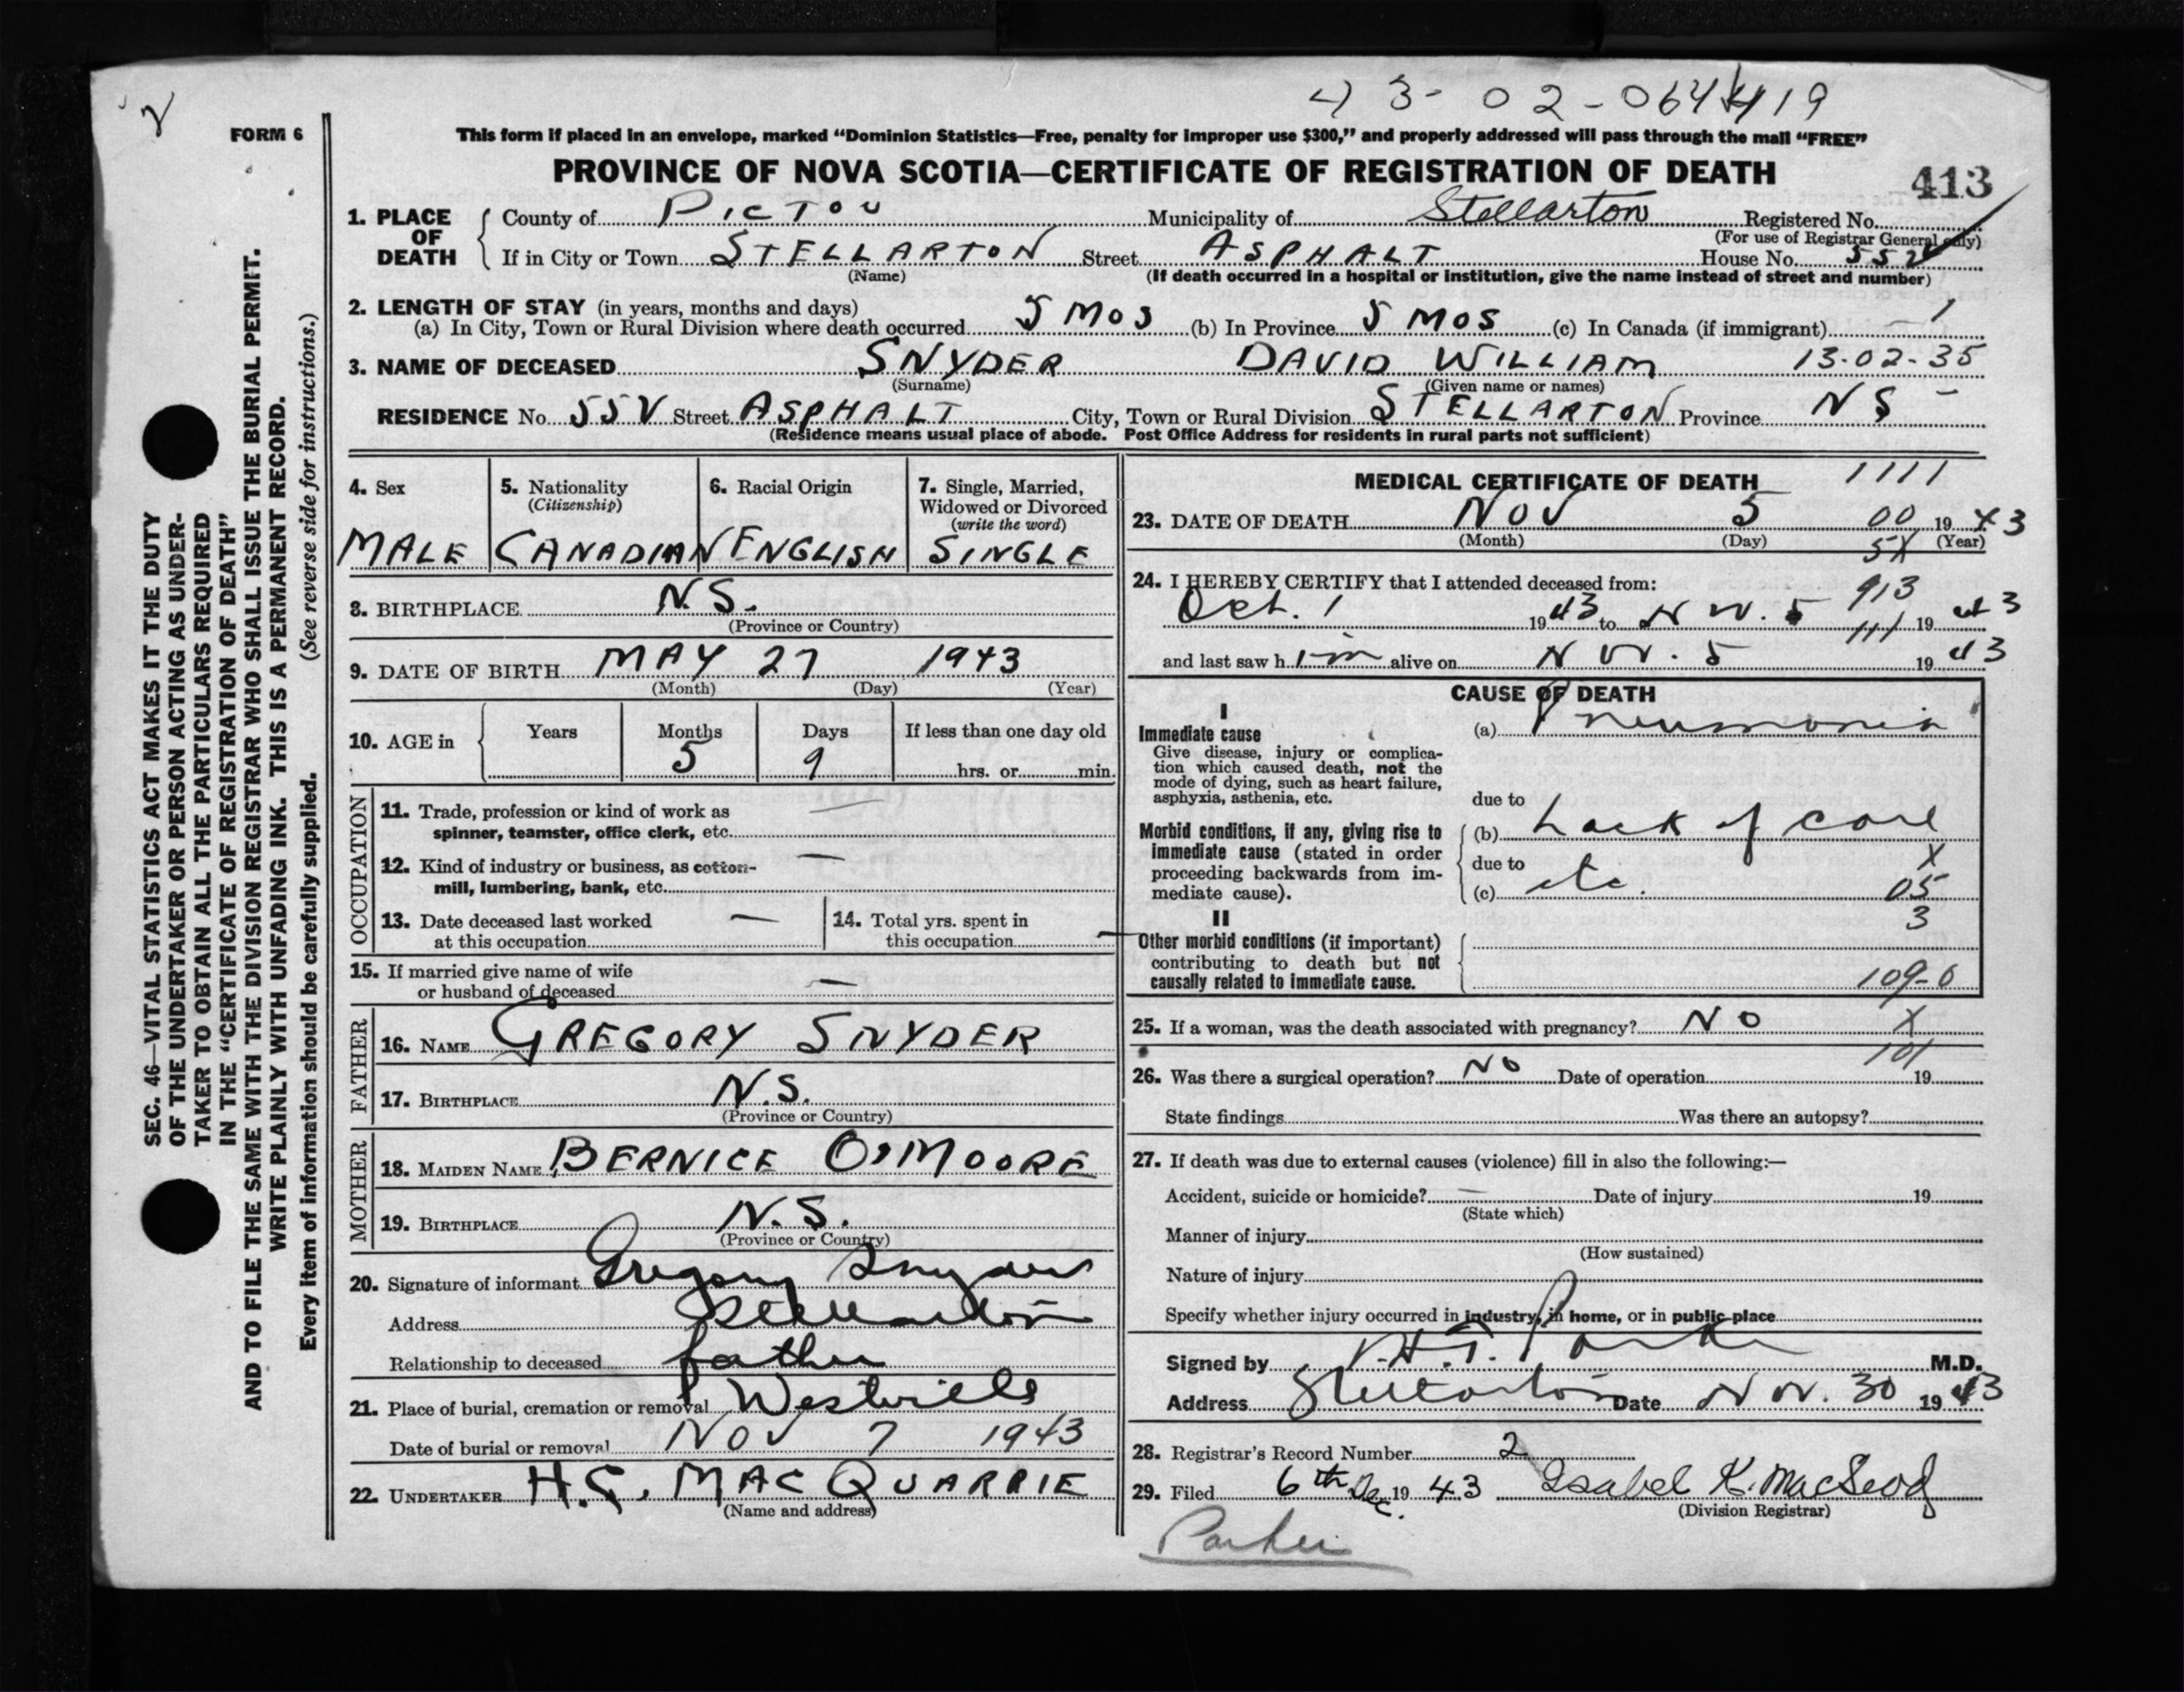 43-02-064419
2
FORM 6
This form if placed in an envelope, marked "Dominion Statistics—Free, penalty for improper use $300," and properly addressed will pass through the mail "FREE"
PROVINCE OF NOVA SCOTIA—CERTIFICATE OF REGISTRATION OF DEATH
413
1. PLACE OF DEATH
County of PICTOU Municipality of Stellarton Registered No.
(For use of Registrar General only)
If in City or Town STELLARTON Street ASPHALT House No. 552
(Name) (If death occurred in a hospital or institution, give the name instead of street and number)
2. LENGTH OF STAY (in years, months and days)
(a) In City, Town or Rural Division where death occurred 5 MOS (b) In Province 5 MOS (c) In Canada (if immigrant) 1
3. NAME OF DECEASED SNYDER DAVID WILLIAM 13-02-35
(Surname) (Given name or names)
RESIDENCE No. 55V Street ASPHALT City, Town or Rural Division STELLARTON Province NS -
(Residence means usual place of abode. Post Office Address for residents in rural parts not sufficient)
4. Sex
MALE
5. Nationality
(Citizenship)
CANADIAN
6. Racial Origin
ENGLISH
7. Single, Married,
Widowed or Divorced
(write the word)
SINGLE
8. BIRTHPLACE N.S.
(Province or Country)
9. DATE OF BIRTH MAY 27 1943
(Month) (Day) (Year)
10. AGE in Years Months Days If less than one day old
5 9 hrs. or min.
OCCUPATION
11. Trade, profession or kind of work as —
spinner, teamster, office clerk, etc.
12. Kind of industry or business, as cotton- —
mill, lumbering, bank, etc.
13. Date deceased last worked —
at this occupation
14. Total yrs. spent in
this occupation —
15. If married give name of wife
or husband of deceased —
FATHER
16. NAME GREGORY SNYDER
17. BIRTHPLACE N.S.
(Province or Country)
MOTHER
18. MAIDEN NAME BERNICE O'MOORE
19. BIRTHPLACE N.S.
(Province or Country)
20. Signature of informant Gregory Snyder
Address Stellarton
Relationship to deceased father
21. Place of burial, cremation or removal Westville
Date of burial or removal NOV 7 1943
22. UNDERTAKER H.C. MACQUARRIE
(Name and address)
MEDICAL CERTIFICATE OF DEATH 1111
23. DATE OF DEATH NOV 5 00 1943
(Month) (Day) 5X (Year)
24. I HEREBY CERTIFY that I attended deceased from: 913
Oct. 1 1943 to Nov. 5 1943
111
and last saw him alive on Nov. 5 1943
CAUSE OF DEATH
I
Immediate cause
Give disease, injury or complica-
tion which caused death, not the
mode of dying, such as heart failure,
asphyxia, asthenia, etc.
(a) Pneumonia
due to
Morbid conditions, if any, giving rise to
immediate cause (stated in order
proceeding backwards from im-
mediate cause).
(b) Lack of care
due to X
(c) etc. 05
3
II
Other morbid conditions (if important)
contributing to death but not
causally related to immediate cause.
109-0
25. If a woman, was the death associated with pregnancy? NO X
101
26. Was there a surgical operation? NO Date of operation 19
State findings Was there an autopsy?
27. If death was due to external causes (violence) fill in also the following:—
Accident, suicide or homicide? — Date of injury 19
(State which)
Manner of injury
(How sustained)
Nature of injury
Specify whether injury occurred in industry, in home, or in public place
Signed by H.T. Parker M.D.
Address Stellarton Date Nov. 30 1943
28. Registrar's Record Number 2
29. Filed 6th Dec. 1943 Isabel K. MacLeod
(Division Registrar)
Parker
SEC. 46—VITAL STATISTICS ACT MAKES IT THE DUTY
OF THE UNDERTAKER OR PERSON ACTING AS UNDER-
TAKER TO OBTAIN ALL THE PARTICULARS REQUIRED
IN THE "CERTIFICATE OF REGISTRATION OF DEATH"
AND TO FILE THE SAME WITH THE DIVISION REGISTRAR WHO SHALL ISSUE THE BURIAL PERMIT.
WRITE PLAINLY WITH UNFADING INK. THIS IS A PERMANENT RECORD.
Every item of information should be carefully supplied. (See reverse side for instructions.)